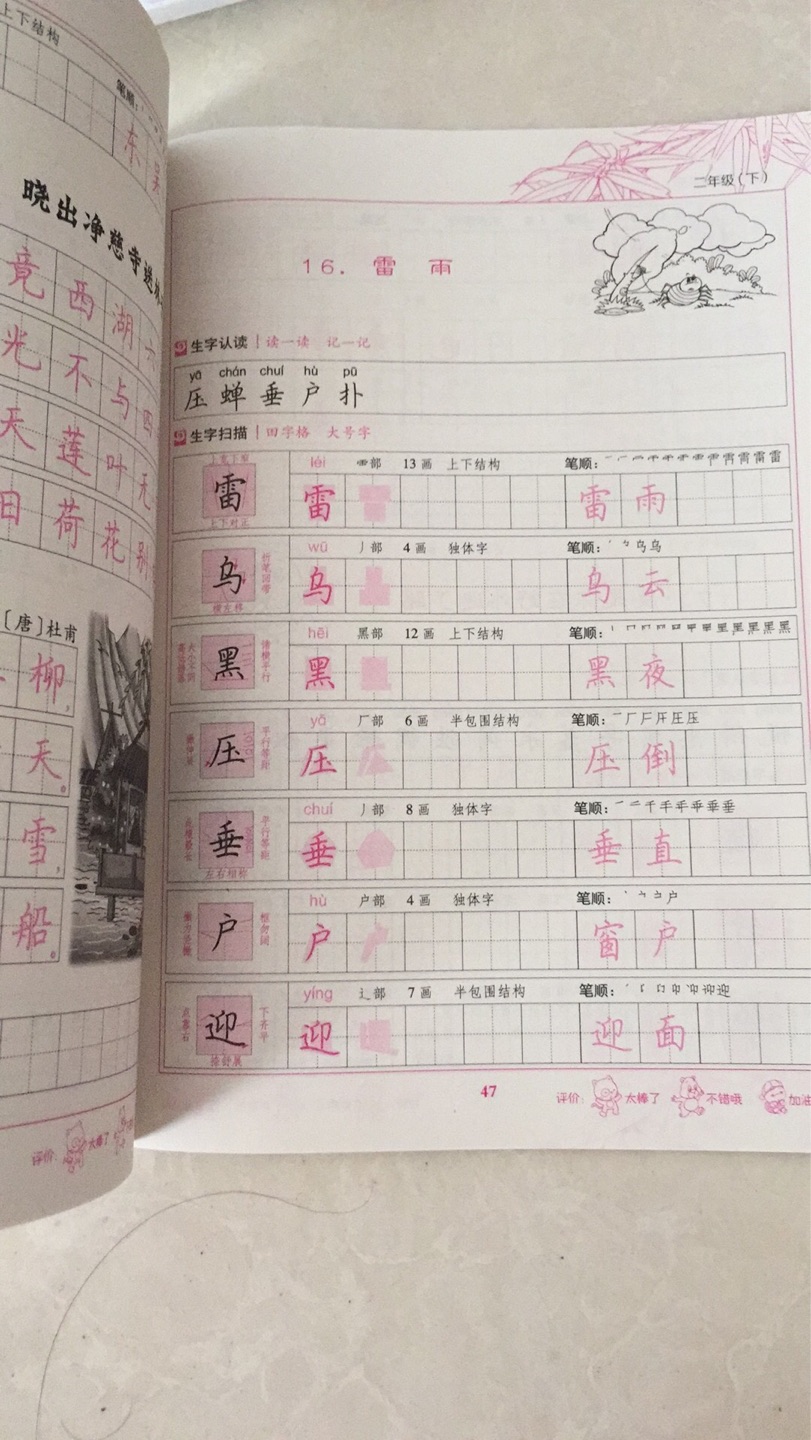 上下结构
笔顺:
东 吴
晓出净慈寺送林
竟 西 湖 六
光 不 与 四
天 莲 叶 无
日 荷 花 别
〔唐〕杜甫
柳
天
雪
船
评价: 太棒了
二年级(下)
16. 雷 雨
生字认读 读一读 记一记
yā chán chuí hù pū
压 蝉 垂 户 扑
生字扫描 田字格 大号字
上宽下窄
雷
上下对正
léi 雨部 13画 上下结构 笔顺:
雷 雷 雨
乌
折笔回带
横左移
wū 丿部 4画 独体字 笔顺:
乌 乌 云
黑
hēi 黑部 12画 上下结构 笔顺:
黑 黑 夜
压
平行等距
yā 厂部 6画 半包围结构 笔顺:
压 压 倒
垂
平行等距
此横最长
左右相称
chuí 丿部 8画 独体字 笔顺:
垂 垂 直
户
hù 户部 4画 独体字 笔顺:
户 窗 户
迎
下齐平
点靠右
捺舒展
yíng 辶部 7画 半包围结构 笔顺:
迎 迎 面
47
评价: 太棒了 不错哦 加油